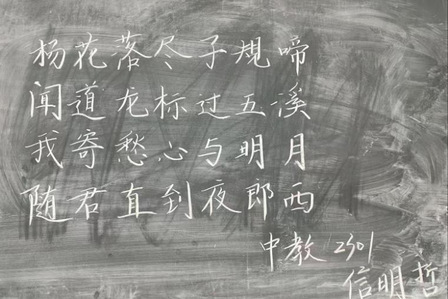 杨花落尽子规啼
闻道龙标过五溪
我寄愁心与明月
随君直到夜郎西
中教 2301
信明哲